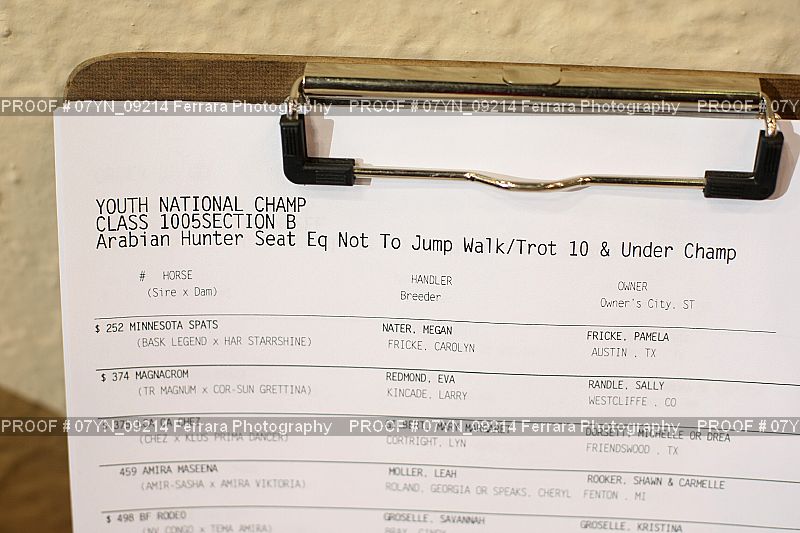 PROOF # 07YN_09214 Ferrara Photography PROOF # 07YN_09214 Ferrara Photography PROOF # 07Y
YOUTH NATIONAL CHAMP
CLASS 1005SECTION B
Arabian Hunter Seat Eq Not To Jump Walk/Trot 10 & Under Champ
# HORSE HANDLER OWNER
(Sire x Dam) Breeder Owner's City, ST
$ 252 MINNESOTA SPATS NATER, MEGAN FRICKE, PAMELA
(BASK LEGEND x HAR STARRSHINE) FRICKE, CAROLYN AUSTIN , TX
$ 374 MAGNACROM REDMOND, EVA RANDLE, SALLY
(TR MAGNUM x COR-SUN GRETTINA) KINCADE, LARRY WESTCLIFFE , CO
PROOF # 07YN_09214 Ferrara Photography PROOF # 07YN_09214 Ferrara Photography PROOF # 07Y
CHEZ DORSETT, MICHELLE OR DREA
(CHEZ x KLUS PRIMA DANCER) CORTRIGHT, LYN FRIENDSWOOD , TX
459 AMIRA MASEENA MOLLER, LEAH ROOKER, SHAWN & CARMELLE
(AMIR-SASHA x AMIRA VIKTORIA) ROLAND, GEORGIA OR SPEAKS, CHERYL FENTON , MI
$ 498 BF RODEO GROSELLE, SAVANNAH GROSELLE, KRISTINA
(NV CONGO x TEMA AMIRA)